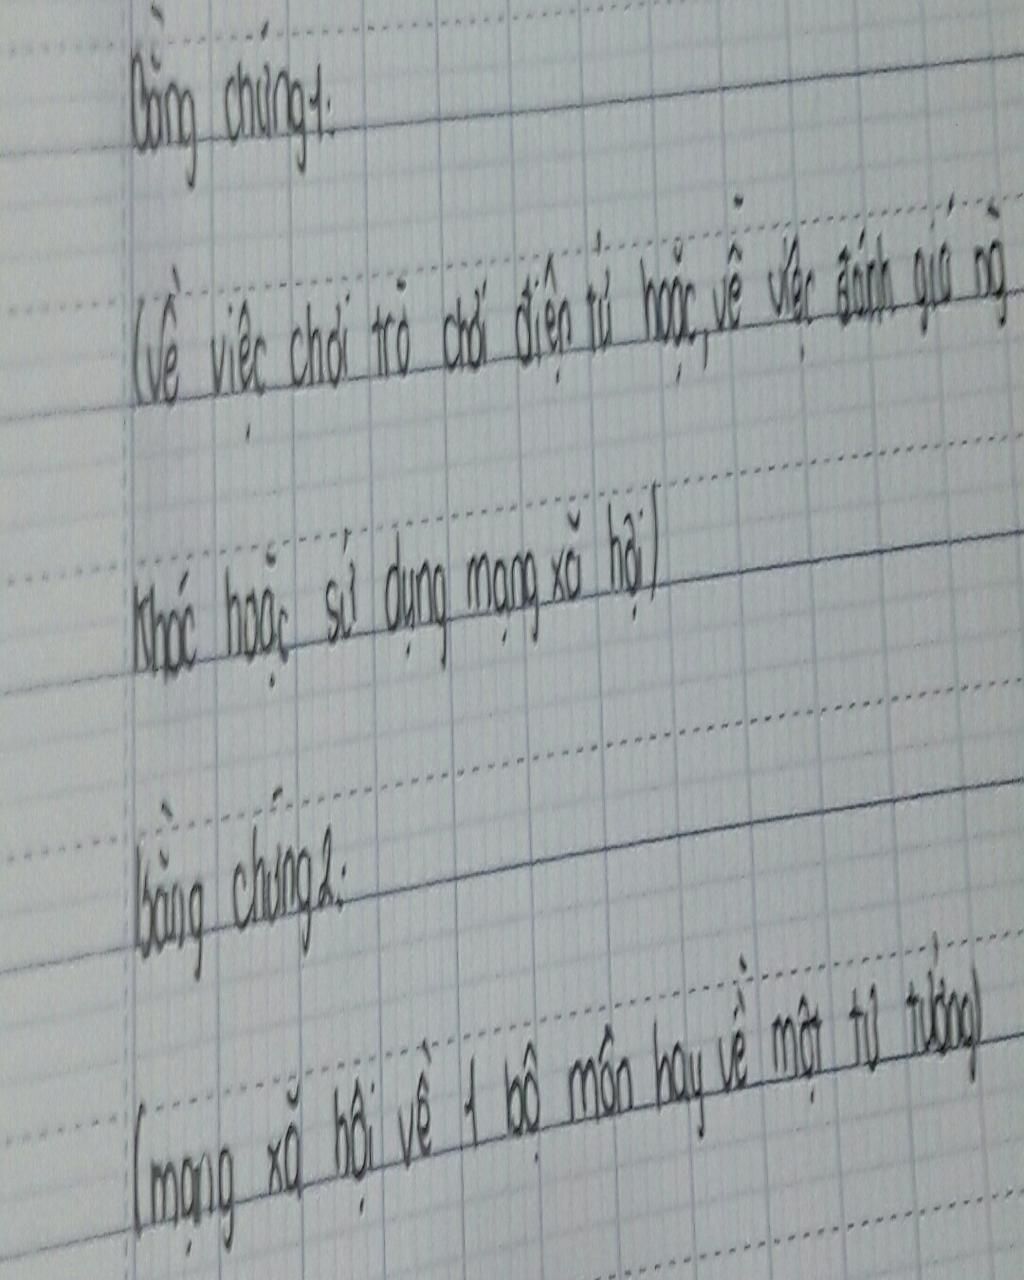 Bằng chứng 1:
(Về việc chơi trò chơi điện tử hoặc, về việc đánh giá ng
Khác hoặc sử dụng mạng xã hội)
bằng chứng 2:
(mạng xã hội về 1 bộ môn hay về một tư tưởng)